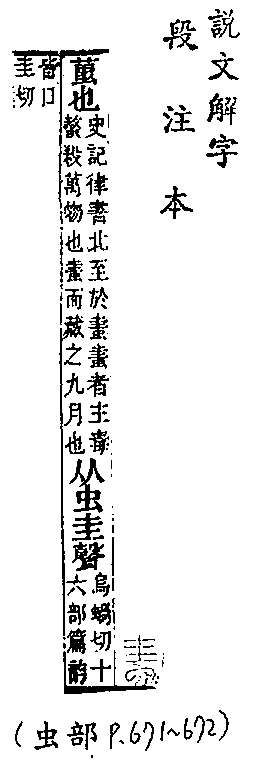 説文解字
段注本
蠆也
史記律書北至於者主毒
螫殺萬物也而藏之九月也
从虫圭聲
烏蝸切十
六部篇韵
皆口
圭切
(虫部 P.671~672)